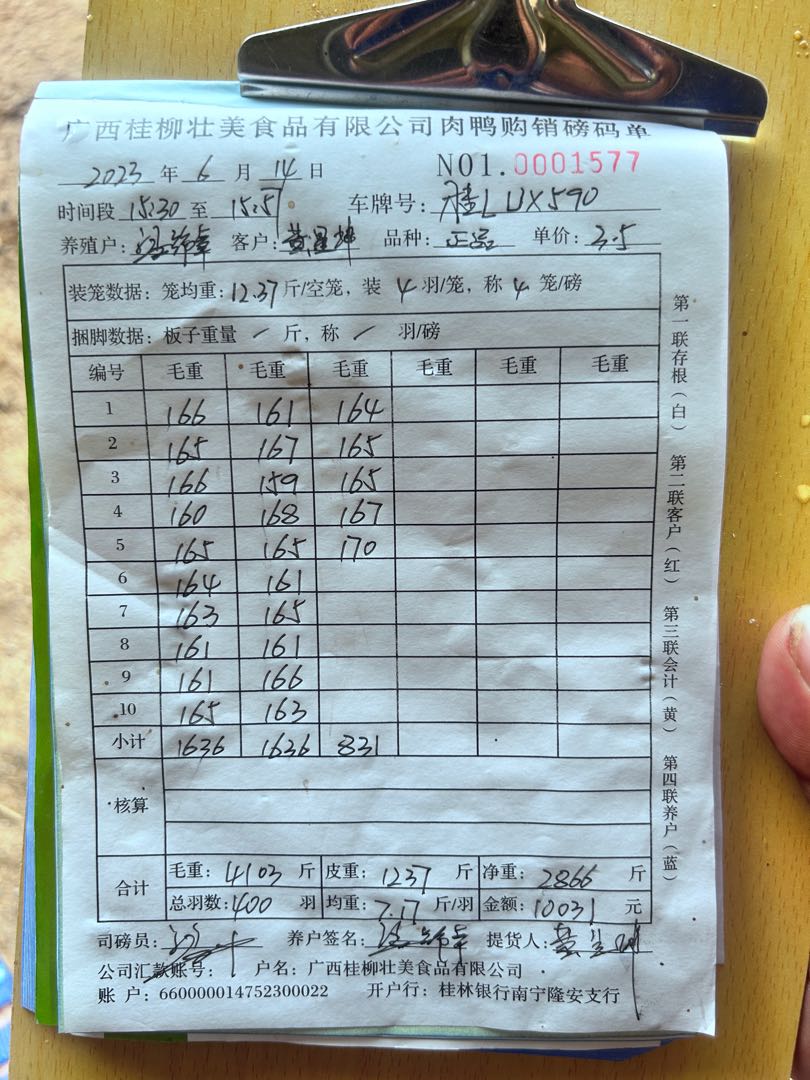 广西桂柳壮美食品有限公司肉鸭购销磅码单
2023 年 6 月 14 日 NO1.0001577
时间段 15:30 至 15:51 车牌号: 桂L UX590
养殖户: 客户: 品种: 正品 单价: 3.5
装笼数据: 笼均重: 12.37 斤/空笼, 装 4 羽/笼, 称 4 笼/磅
捆脚数据: 板子重量 一 斤, 称 / 羽/磅
编号 毛重 毛重 毛重 毛重 毛重 毛重
1 166 161 164
2 165 167 165
3 166 159 165
4 160 168 167
5 165 165 170
6 164 161
7 163 165
8 161 161
9 161 166
10 165 163
小计 1636 1636 831
核算
合计 毛重: 4103 斤 皮重: 1237 斤 净重: 2866 斤
总羽数: 400 羽 均重: 7.17 斤/羽 金额: 10031 元
司磅员: 养户签名: 提货人:
公司汇款账号: 户名: 广西桂柳壮美食品有限公司
账 户: 660000014752300022 开户行: 桂林银行南宁隆安支行
第一联存根(白) 第二联客户(红) 第三联会计(黄) 第四联养户(蓝)